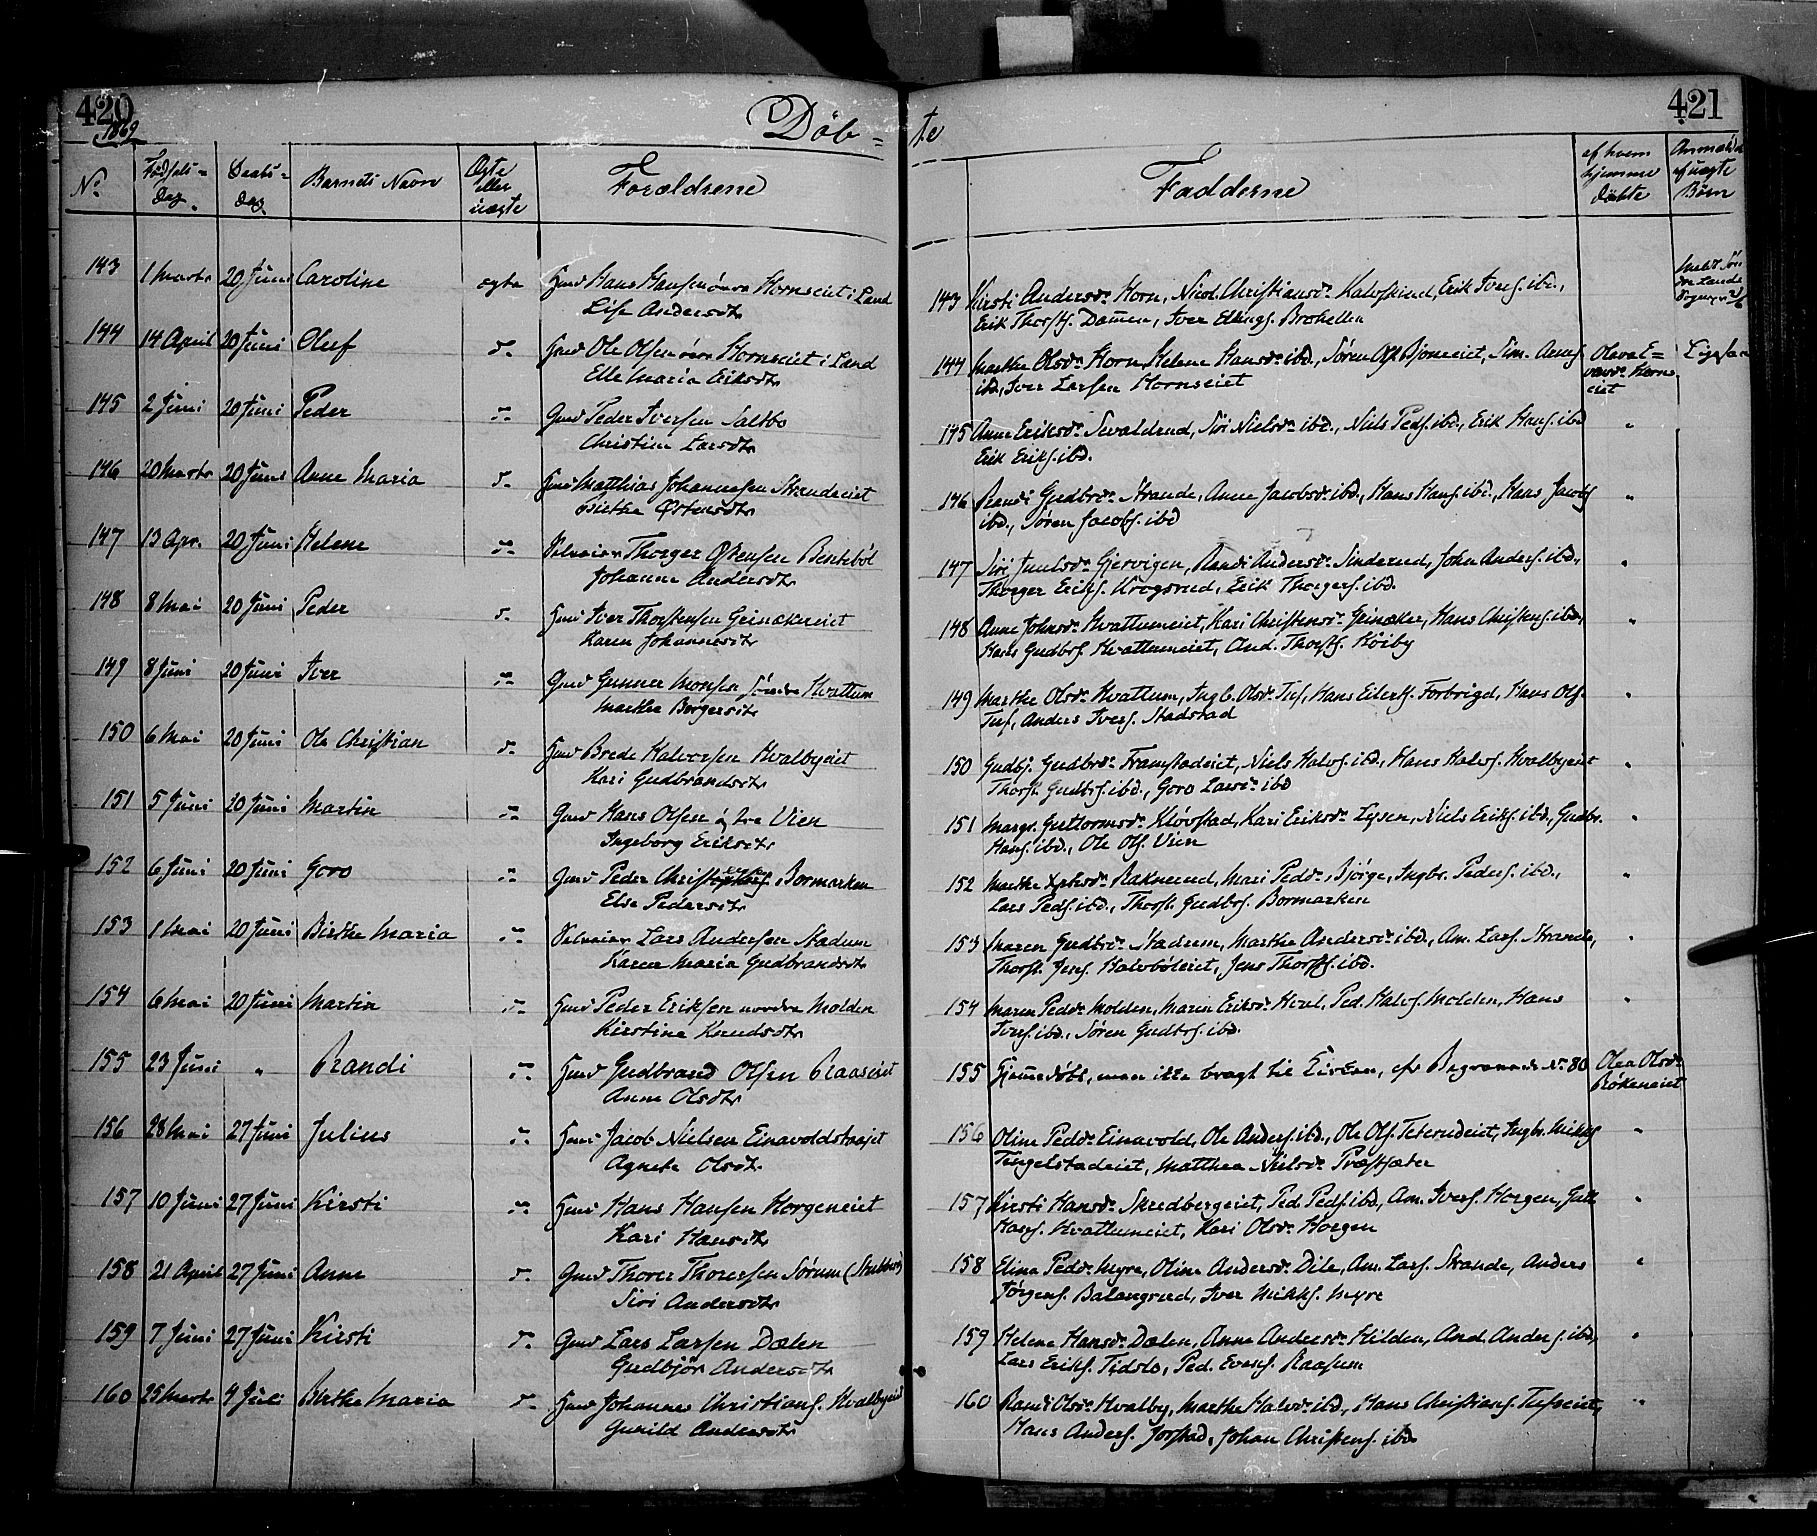 420
1869
Döb=
No
Fødsels=
Dag.
Daabs=
dag.
Barnets Navn
Ægte
eller
uægte
Forældrene
143 1 Marts 20 Juni Caroline ægte Huusm Hans Hansen Hornseiet i Land
Lise Andersdtr
144 14 April 20 Juni Oluf do Huusm Ole Olsen Hornseiet i Land
Elli Maria Eriksdtr
145 2 Juni 20 Juni Peder do Gmd Peder Iversen Saltbo
Christine Larsdtr
146 20 Marts 20 Juni Anne Maria do Huusm Matthias Johannesen Strandeeiet
Birthe Østensdtr
147 13 Apr. 20 Juni Helene do Thorger Ostensen Benteböl
Johanne Andersdtr
148 8 Mai 20 Juni Peder do Huusm Iver Thorstensen Grinakereiet
Karen Johannesdtr
149 8 Juni 20 Juni Iver do Gmd Gunner Monsen søndre Hvattum
Marthe Borgersdtr
150 6 Mai 20 Juni Ole Christian do Huusm Brede Halvorsen Hvalbyeiet
Kari Gudbrandsdtr
151 5 Juni 20 Juni Martin do Gmd Hans Olsen Vien
Ingeborg Eriksdtr
152 6 Juni 20 Juni Goro do Gmd Peder Bormarken
Else Pedersdtr
153 1 Mai 20 Juni Birthe Maria do Lars Andersen Stadum
Karen Maria Gudbrandsdtr
154 6 Mai 20 Juni Martin do Huusm Peder Eriksen nordre Molden
Kirstine Knudsdtr
155 23 Juni " Randi do Huusm Gudbrand Olsen Raaseiet
Anne Olsdtr
156 28 Mai 27 Juni Julius do Huusm Jacob Nielsen
Agnete Olsdtr
157 10 Juni 27 Juni Kirsti do Huusm Hans Hansen Horgeneiet
Kari Hansdtr
158 21 April 27 Juni Anne do Gmd Thorer Thorersen Sørum
Siri Andersdtr
159 7 Juni 27 Juni Kirsti do Gmd Lars Larsen Dælen
Gudbjør Andersdtr
160 25 Marts 4 Juli Birthe Maria do Huusm Johannes Christians. Hvalbyeiet
Gunild Andersdtr
421
te
Fadderne
af hvem
hjemme
döbte
af uægte
Börn
143 Kirsti Andersdr Horn, Nicol. Christiansdr Kalvskind, Erik Ivers. ibd.,
Erik Thorsts. Damen, Iver Ellings. Brohellen
144 Marthe Olsdr Horn, Helene Hansdr ibd., Søren Ols. Bjorneeiet, Sim. Arnes.
ibd., Iver Larsen Hornseiet
145 Anne Eriksdr Sevaldrud, Siri Nielsdr ibd., Niels Peds. ibd., Erik Hans. ibd
Erik Eriks. ibd.
"
146 Randi Gudbrdr Strande, Anne Jacobsdr ibd., Hans Hans. ibd., Hans Jacobs.
ibd., Søren Jacobs. ibd
"
147 Siri Juulsdr Gjervigen, Randi Andersdr Sinderud, John Anders. ibd.,
Thorger Eriks. Krogsrud, Erik Thorgers. ibd.
"
148 Anne Johnsdr Hvattumeiet, Kari Christensdr Grinaker, Hans Christens. ibd.,
Hans Gudbrs. Hvattumeiet, And. Thorsts. Höiby
"
149 Marthe Olsdr Hvattum, Ingb. Olsdr Tuf, Hans Eilerts. Forbrigd, Hans Ols.
Tuf, Anders Ivers. Stadstad
"
150 Gudbj. Gudbrdr Framstadeiet, Niels Halvs. ibd., Hans Halvs. Hvalbyeiet
Thorst. Gudbrs. ibd., Goro Larsdr ibd
"
151 Margr. Guttormsdr Klövstad, Kari Eriksdr Lysen, Niels Eriks. ibd., Gudbr.
Hans. ibd., Ole Ols. Vien
"
152 Marthe Raknerud, Mari Peddr. Bjørge, Ingbr. Peders. ibd.,
Lars Peds. ibd., Thorst. Gudbrs. Bormarken
"
153 Maren Gudbrdr Stadum, Marthe Andersdr ibd., Am. Lars. Strande,
Thorst. Jens. Halvböleiet, Jens Thorsts. ibd.
"
154 Maren Peddr Molden, Maren Eriksdr Hval, Ped. Halvs. Molden, Hans
Ivers. ibd., Søren Gudbrs. ibd.
"
155 Hjemmedöbt, men ikke bragt til Kirken, cfr Begravede No 80 Olea Olsdr
Rökeneiet
156 Oline Peddr Einavold, Ole Anders. ibd., Ole Ols. Teterudeiet, Ingbr. Mikks.
Tingelstadeiet, Matthea Nielsdr Præstsæter
"
157 Kirsti Hansdr Skredbergeiet, Ped. Peds. ibd., Am. Ivers. Horgen, Gulb.
Hans. Hvattumeiet, Kari Olsdr Horgen
"
158 Eline Peddr Myre, Oline Andersdr Dile, Am. Lars. Strande, Anders
Jørgens. Balangrud, Iver Mikkels. Myre
"
159 Helene Hansdr Dælen, Anne Andersdr Hilden, And. Anders. ibd,
Lars Eriks. Tidslo, Ped. Evens. Raasum
"
160 Randi Olsdr Hvalby, Marthe Halvdr ibd., Hans Christians. Tufseiet,
Hans Anders. Jorstad, Johan Christens. ibd.
"